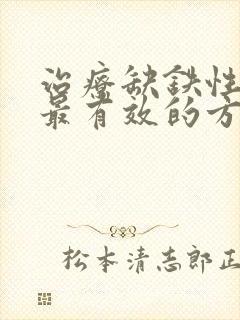 治療缺鉄性
最有效的方
松本清志郎正